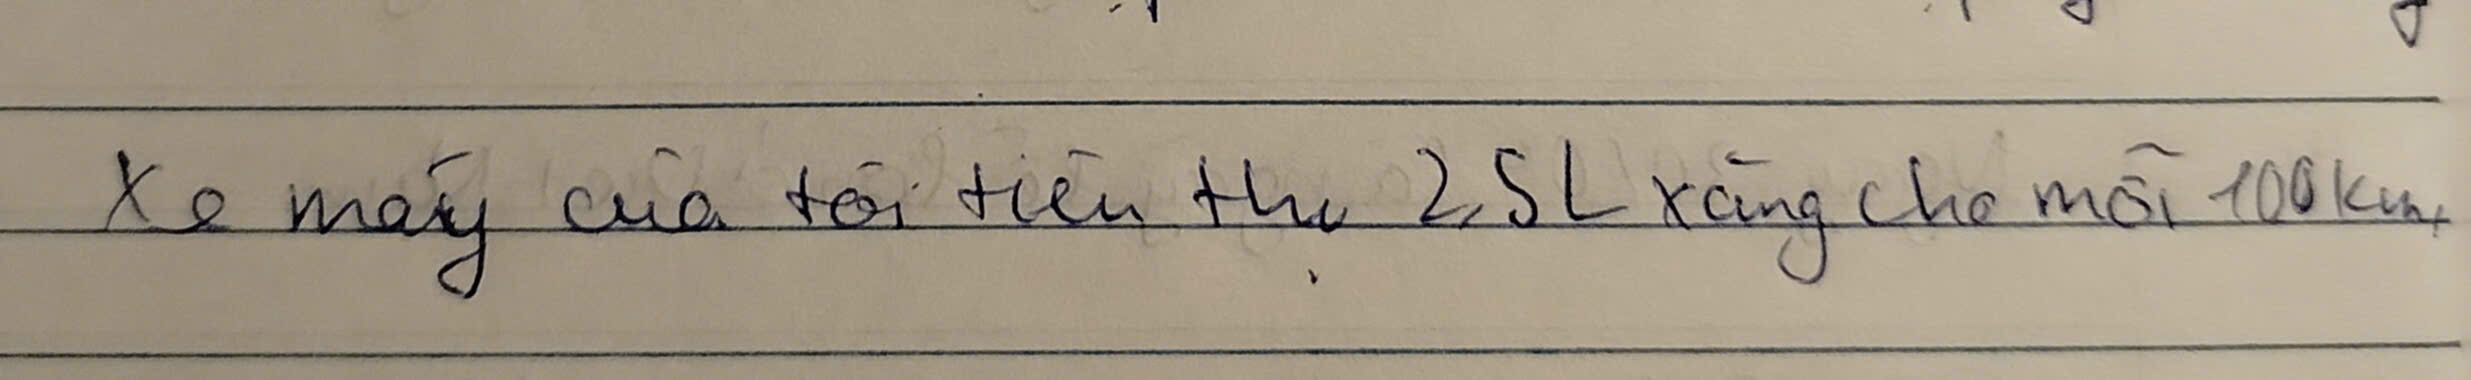 Xe máy của tôi tiêu thụ 2,5L xăng cho mỗi 100km,